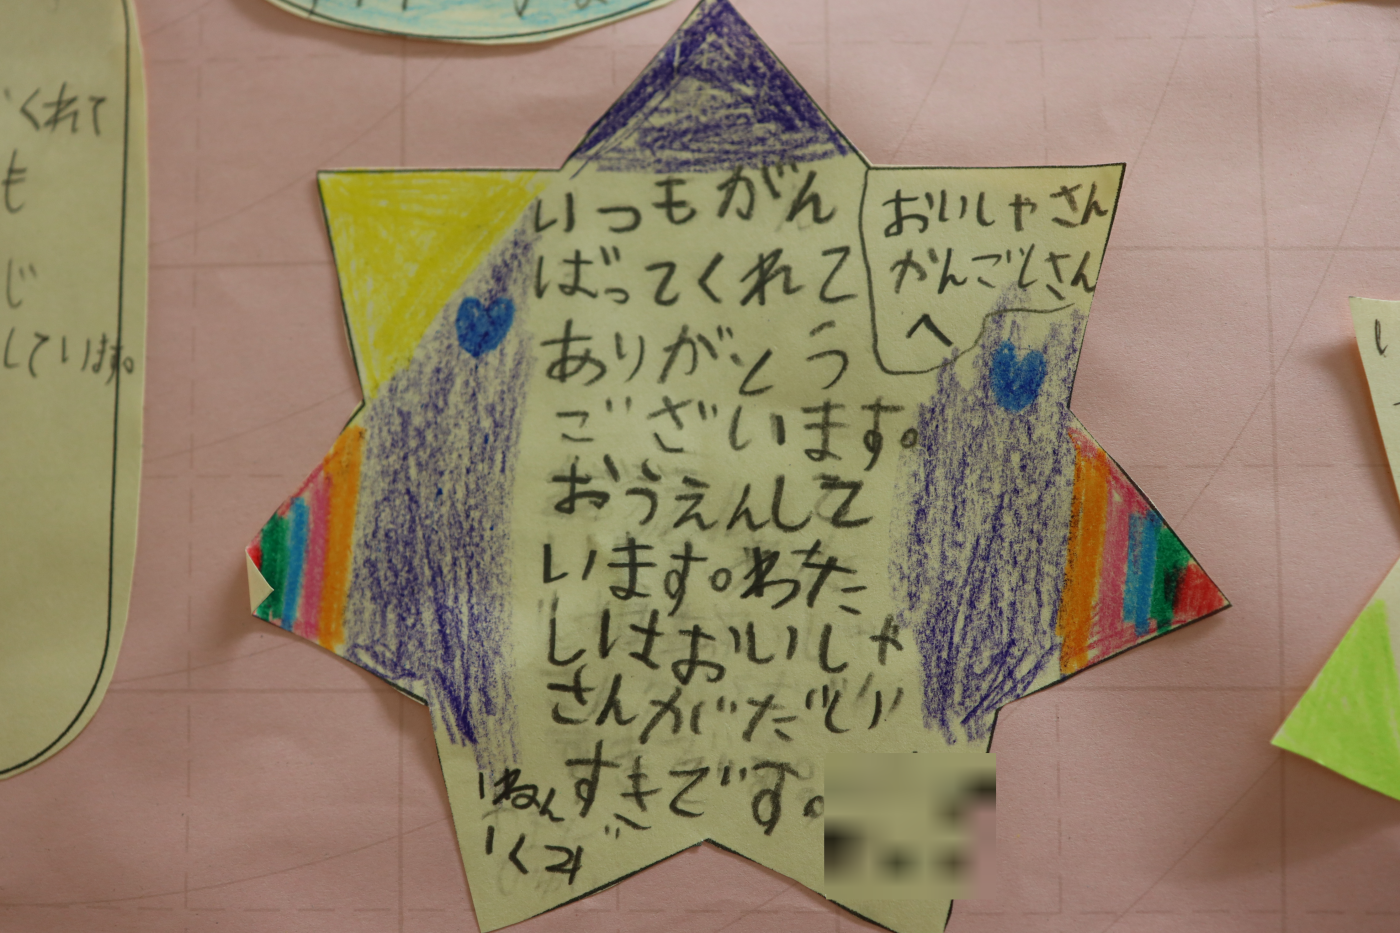 くれて
も
じ
しています。
おいしゃさん
かんごしさん
へ
いつもがん
ばってくれて
ありがとう
ございます。
おうえんして
います。わた
しはおいしゃ
さんがだいい
すきです。
1ねん
1くみ